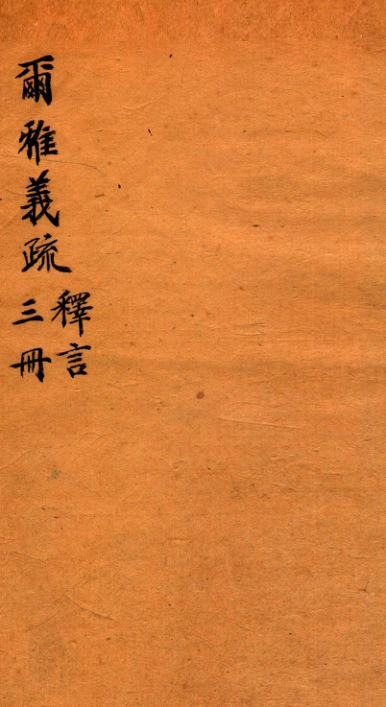 爾雅義疏
釋言
三冊